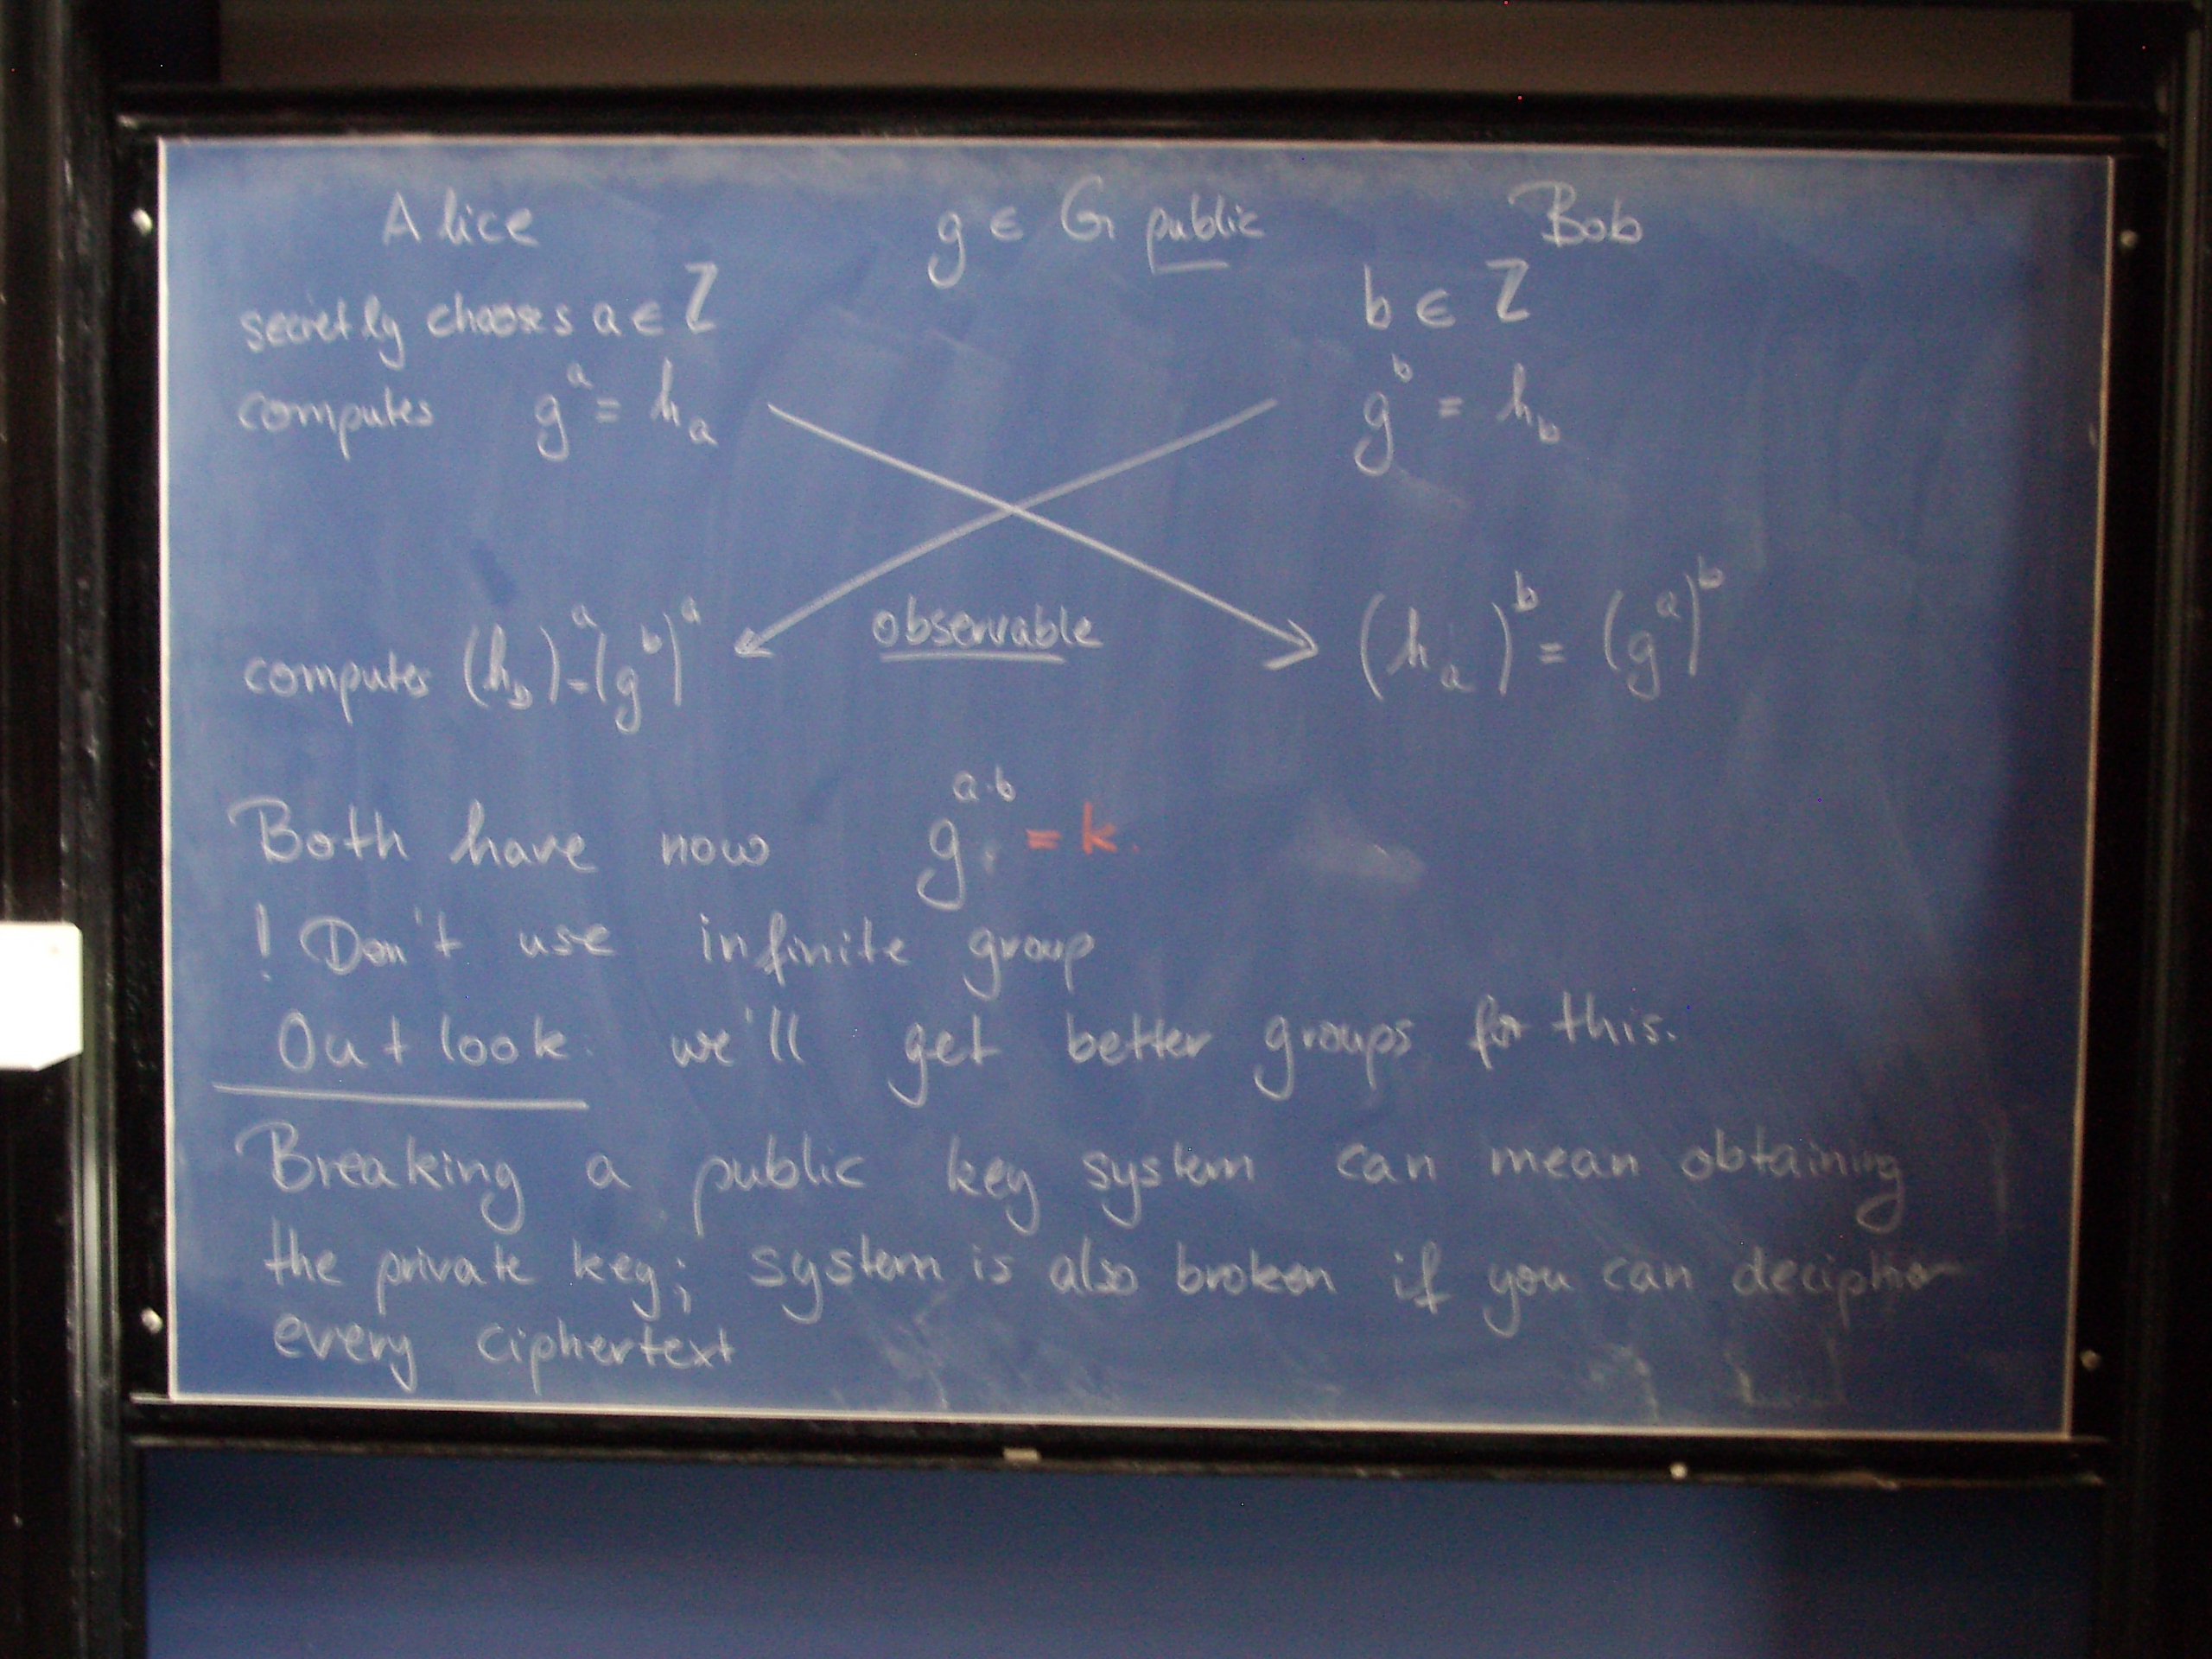 Alice g ∈ G public Bob
secretly chooses a ∈ ℤ b ∈ ℤ
computes g^a = h_a g^b = h_b
observable
computes (h_b)^a = (g^b)^a (h_a)^b = (g^a)^b
Both have now g^{a·b} = k.
! Don't use infinite group
Outlook: we'll get better groups for this.
Breaking a public key system can mean obtaining
the private key; system is also broken if you can decipher
every ciphertext